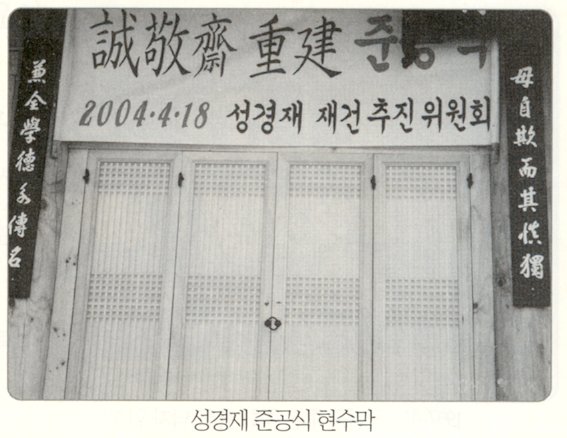 誠敬齋 重建 준공식
2004·4·18 성경재 재건 추진 위원회
毋自欺而其慎獨
兼全學德永傳名
성경재 준공식 현수막